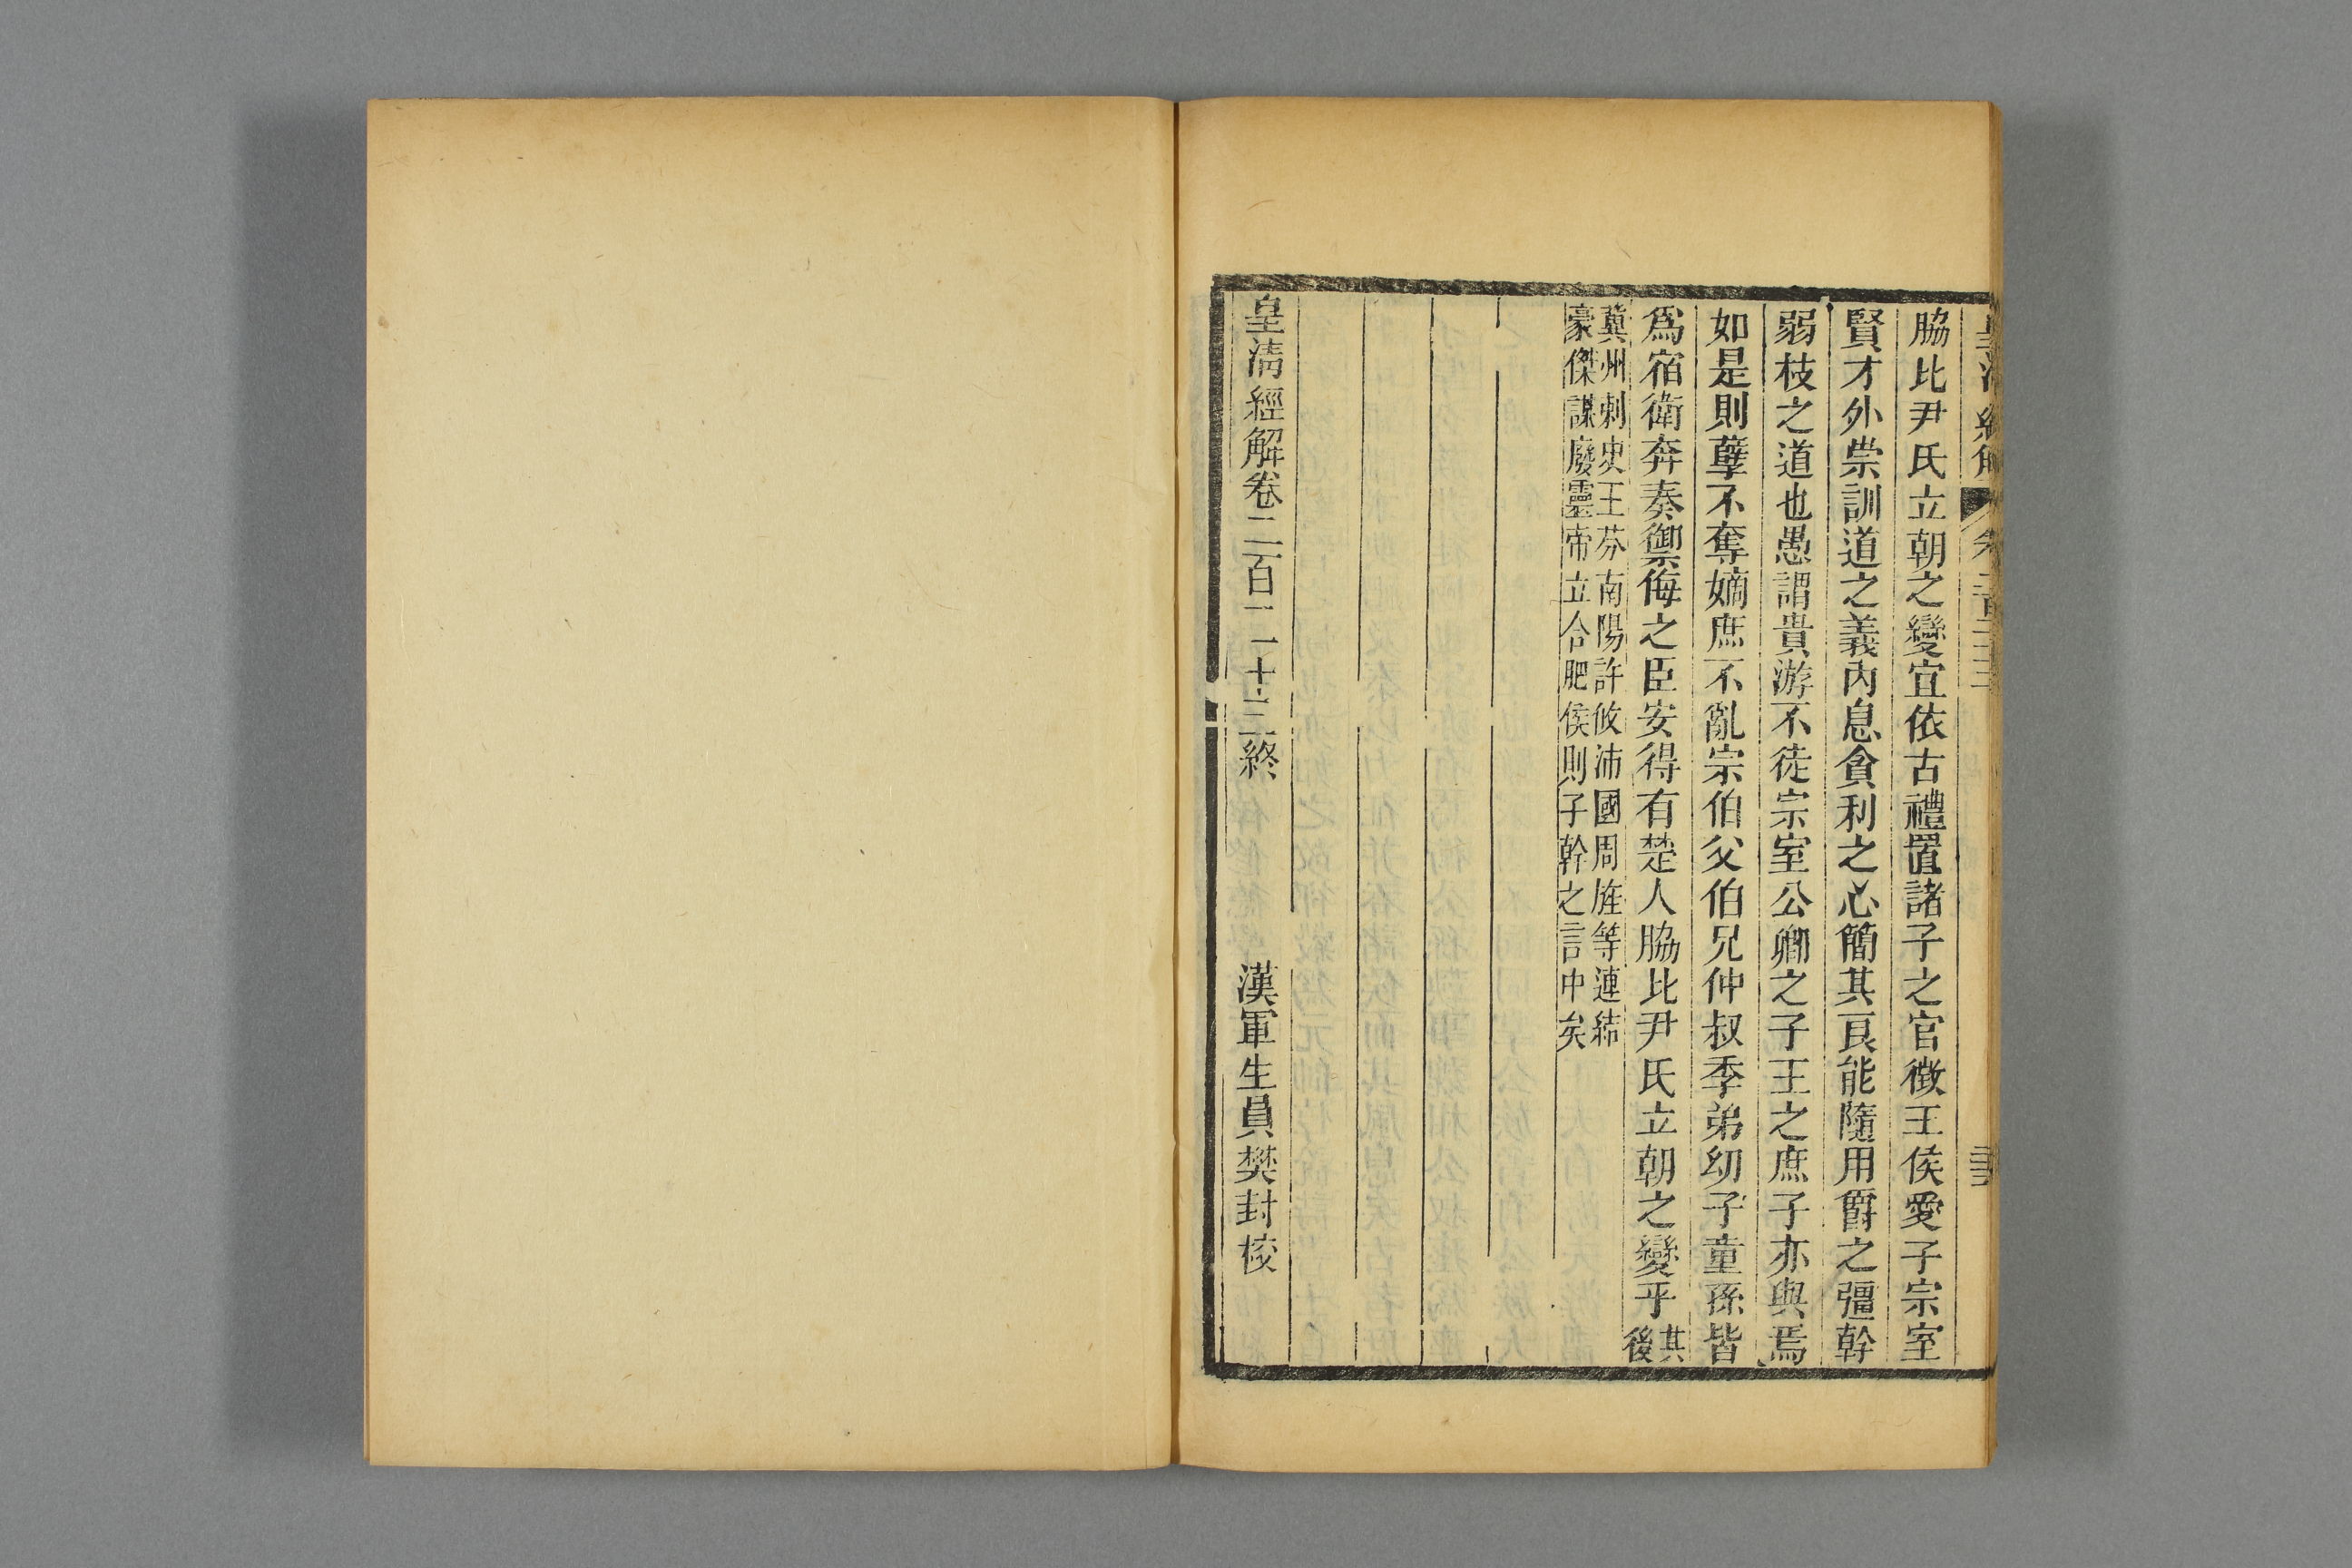 皇清經解 卷二百二十三
脇比尹氏立朝之變宜依古禮置諸子之官徵王侯愛子宗室
賢才外崇訓道之義內息貪利之心簡其良能隨用爵之彊幹
弱枝之道也愚謂貴游不徒宗室公卿之子王之庶子亦與焉
如是則孽不奪嫡庶不亂宗伯父伯兄仲叔季弟幼子童孫皆
爲宿衛奔奏禦侮之臣安得有楚人脇比尹氏立朝之變乎其
後
冀州刺史王芬南陽許攸沛國周旌等連結
豪傑謀廢靈帝立合肥侯則子幹之言中矣
皇清經解卷二百二十三終 漢軍生員樊封校